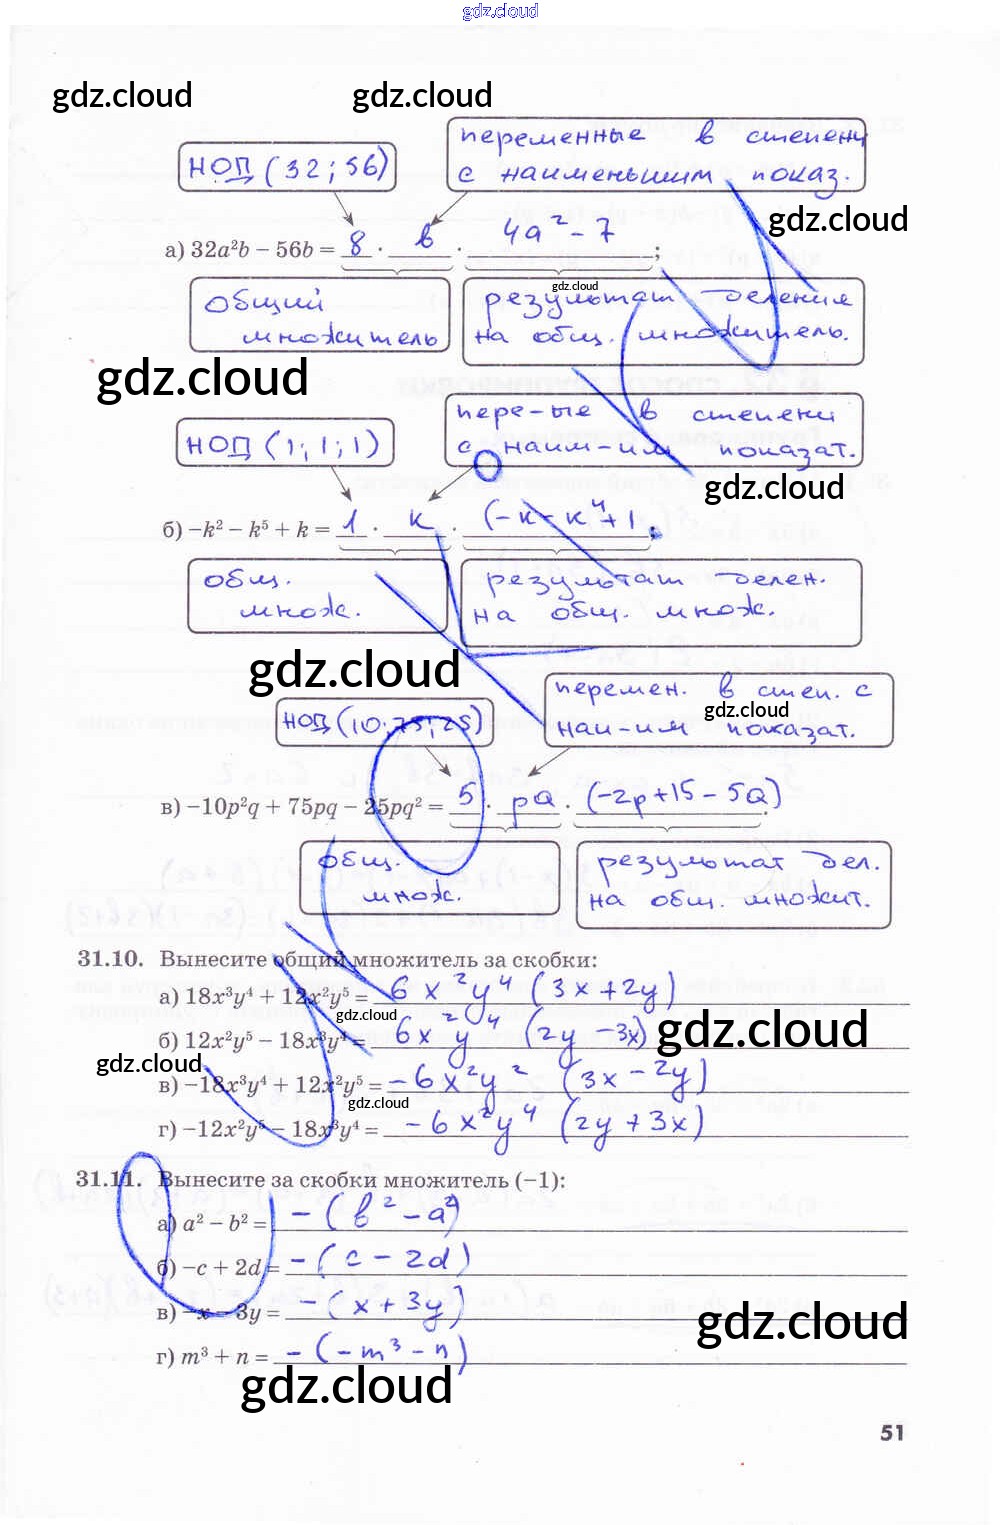 gdz.cloud
gdz.cloud gdz.cloud
НОД (32; 56)
переменные в степени
с наименьшим показ.
gdz.cloud
а) 32a²b − 56b = 8 · b · 4a² − 7 ;
gdz.cloud
общий
множитель
результат деления
на общ. множитель.
gdz.cloud
НОД (1; 1; 1)
пере-ые в степени
с наим-им показат.
gdz.cloud
б) −k² − k⁵ + k = 1 · k · (−k − k⁴ + 1.
общ.
множ.
результат делен.
на общ. множ.
gdz.cloud
НОД (10; 75; 25)
перемен. в степ. с
наи-им показат.
gdz.cloud
в) −10p²q + 75pq − 25pq² = 5 · pq · (−2p + 15 − 5q) .
общ.
множ.
результат дел.
на общ. множит.
31.10. Вынесите общий множитель за скобки:
а) 18x³y⁴ + 12x²y⁵ = 6x²y⁴ (3x + 2y)
gdz.cloud
б) 12x²y⁵ − 18x³y⁴ = 6x y⁴ (2y − 3x)
gdz.cloud
gdz.cloud
в) −18x³y⁴ + 12x²y⁵ = −6x²y² (3x − 2y)
gdz.cloud
г) −12x²y⁵ − 18x³y⁴ = −6x²y⁴ (2y + 3x)
31.11. Вынесите за скобки множитель (−1):
а) a² − b² = −(b² − a²)
б) −c + 2d = −(c − 2d)
в) −x − 3y = −(x + 3y)
gdz.cloud
г) m³ + n = −(−m³ − n)
gdz.cloud
51